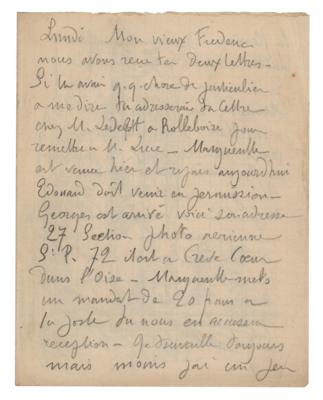 Lundi Mon vieux Frederic
nous avons recu tes deux lettres –
Si tu avais q.q. chose de particulier
a me dire tu adresserais ta lettre
chez M. Ledebt a Rolleboise pour
remettre a M. Luce – Marguerite
est venue hier et repars aujourdhui
Edouard doit venir en permission –
Georges est arrivé voici son adresse
27 Section photo aerienne
S. P. 72 il est a Creve Coeur
dans l'Oise – Marguerite mets
un mandat de 20 francs a
la poste tu nous en accusera
reception – Je travaille toujours
mais moins j'ai un peu